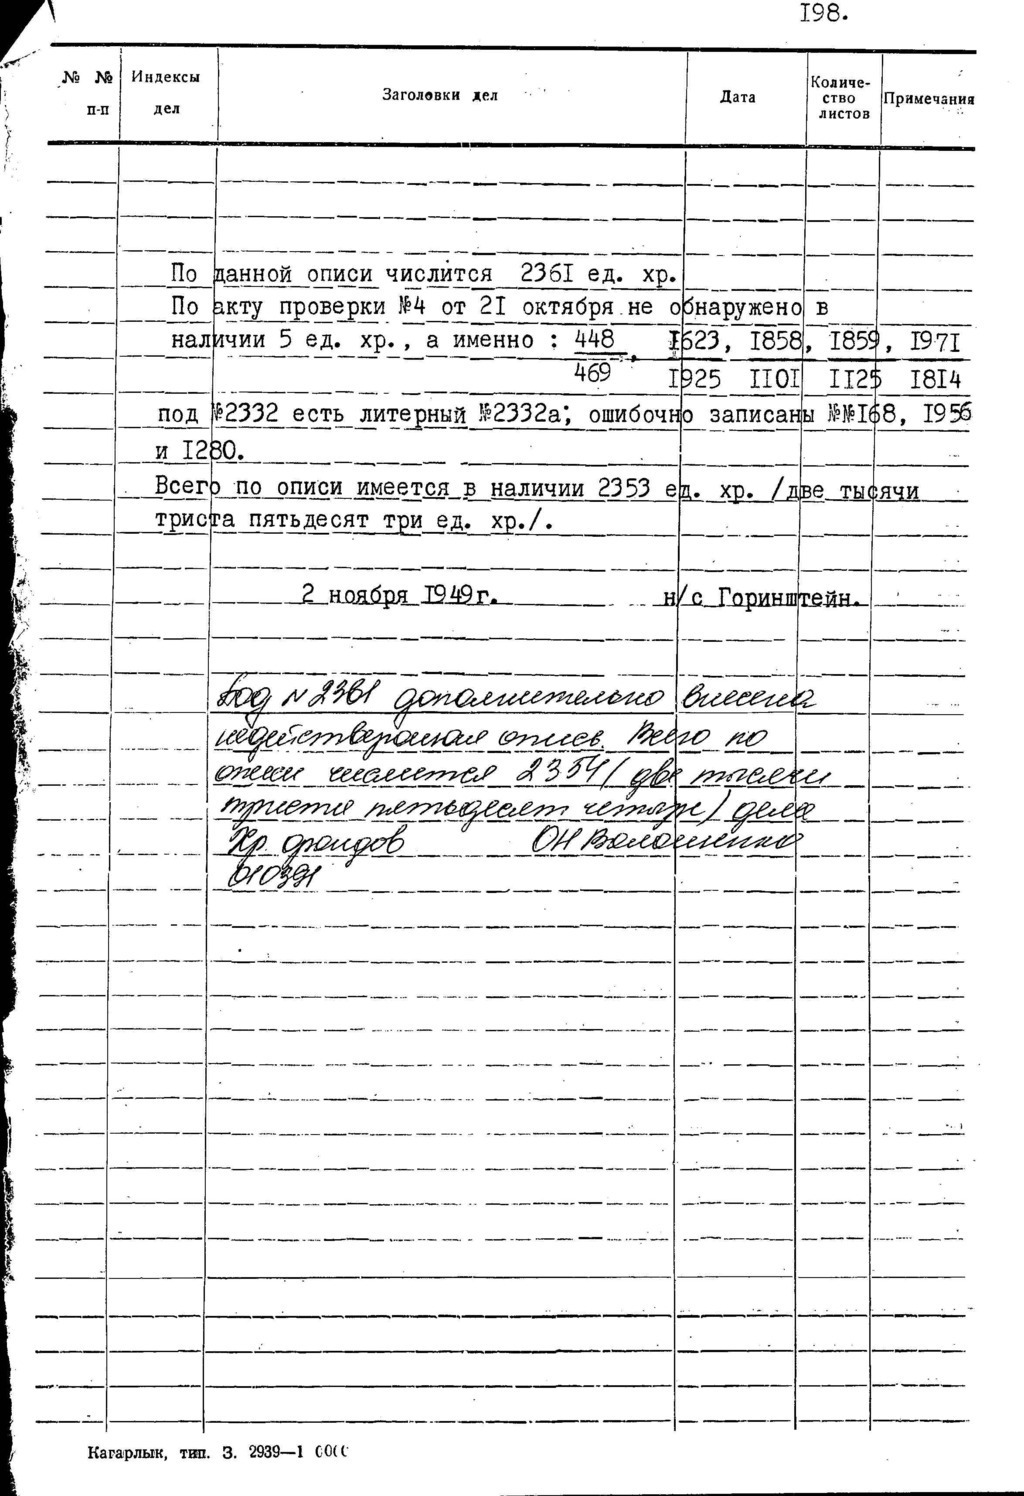 198.
№ № п-п
Индексы дел
Заголовки дел
Дата
Количество листов
Примечания
По данной описи числится 2361 ед. хр.
По акту проверки №4 от 21 октября не обнаружено в
наличии 5 ед. хр., а именно : 448, 1623, 1858, 1859, 1971
469 1925 1101 1125 1814
под №2332 есть литерный №2332а; ошибочно записаны №№168, 1956
и 1280.
Всего по описи имеется в наличии 2353 ед. хр. /две тысячи
триста пятьдесят три ед. хр./.
2 ноября 1949г. н/с Горинштейн.
Под N 2361 дополнительно внесена
недействующая опись. Всего по
описи числится 2354 (две тысячи
триста пятьдесят четыре) дела
Хр. фондов ОН Волошенко
010391
Кагарлык, тип. З. 2939—1